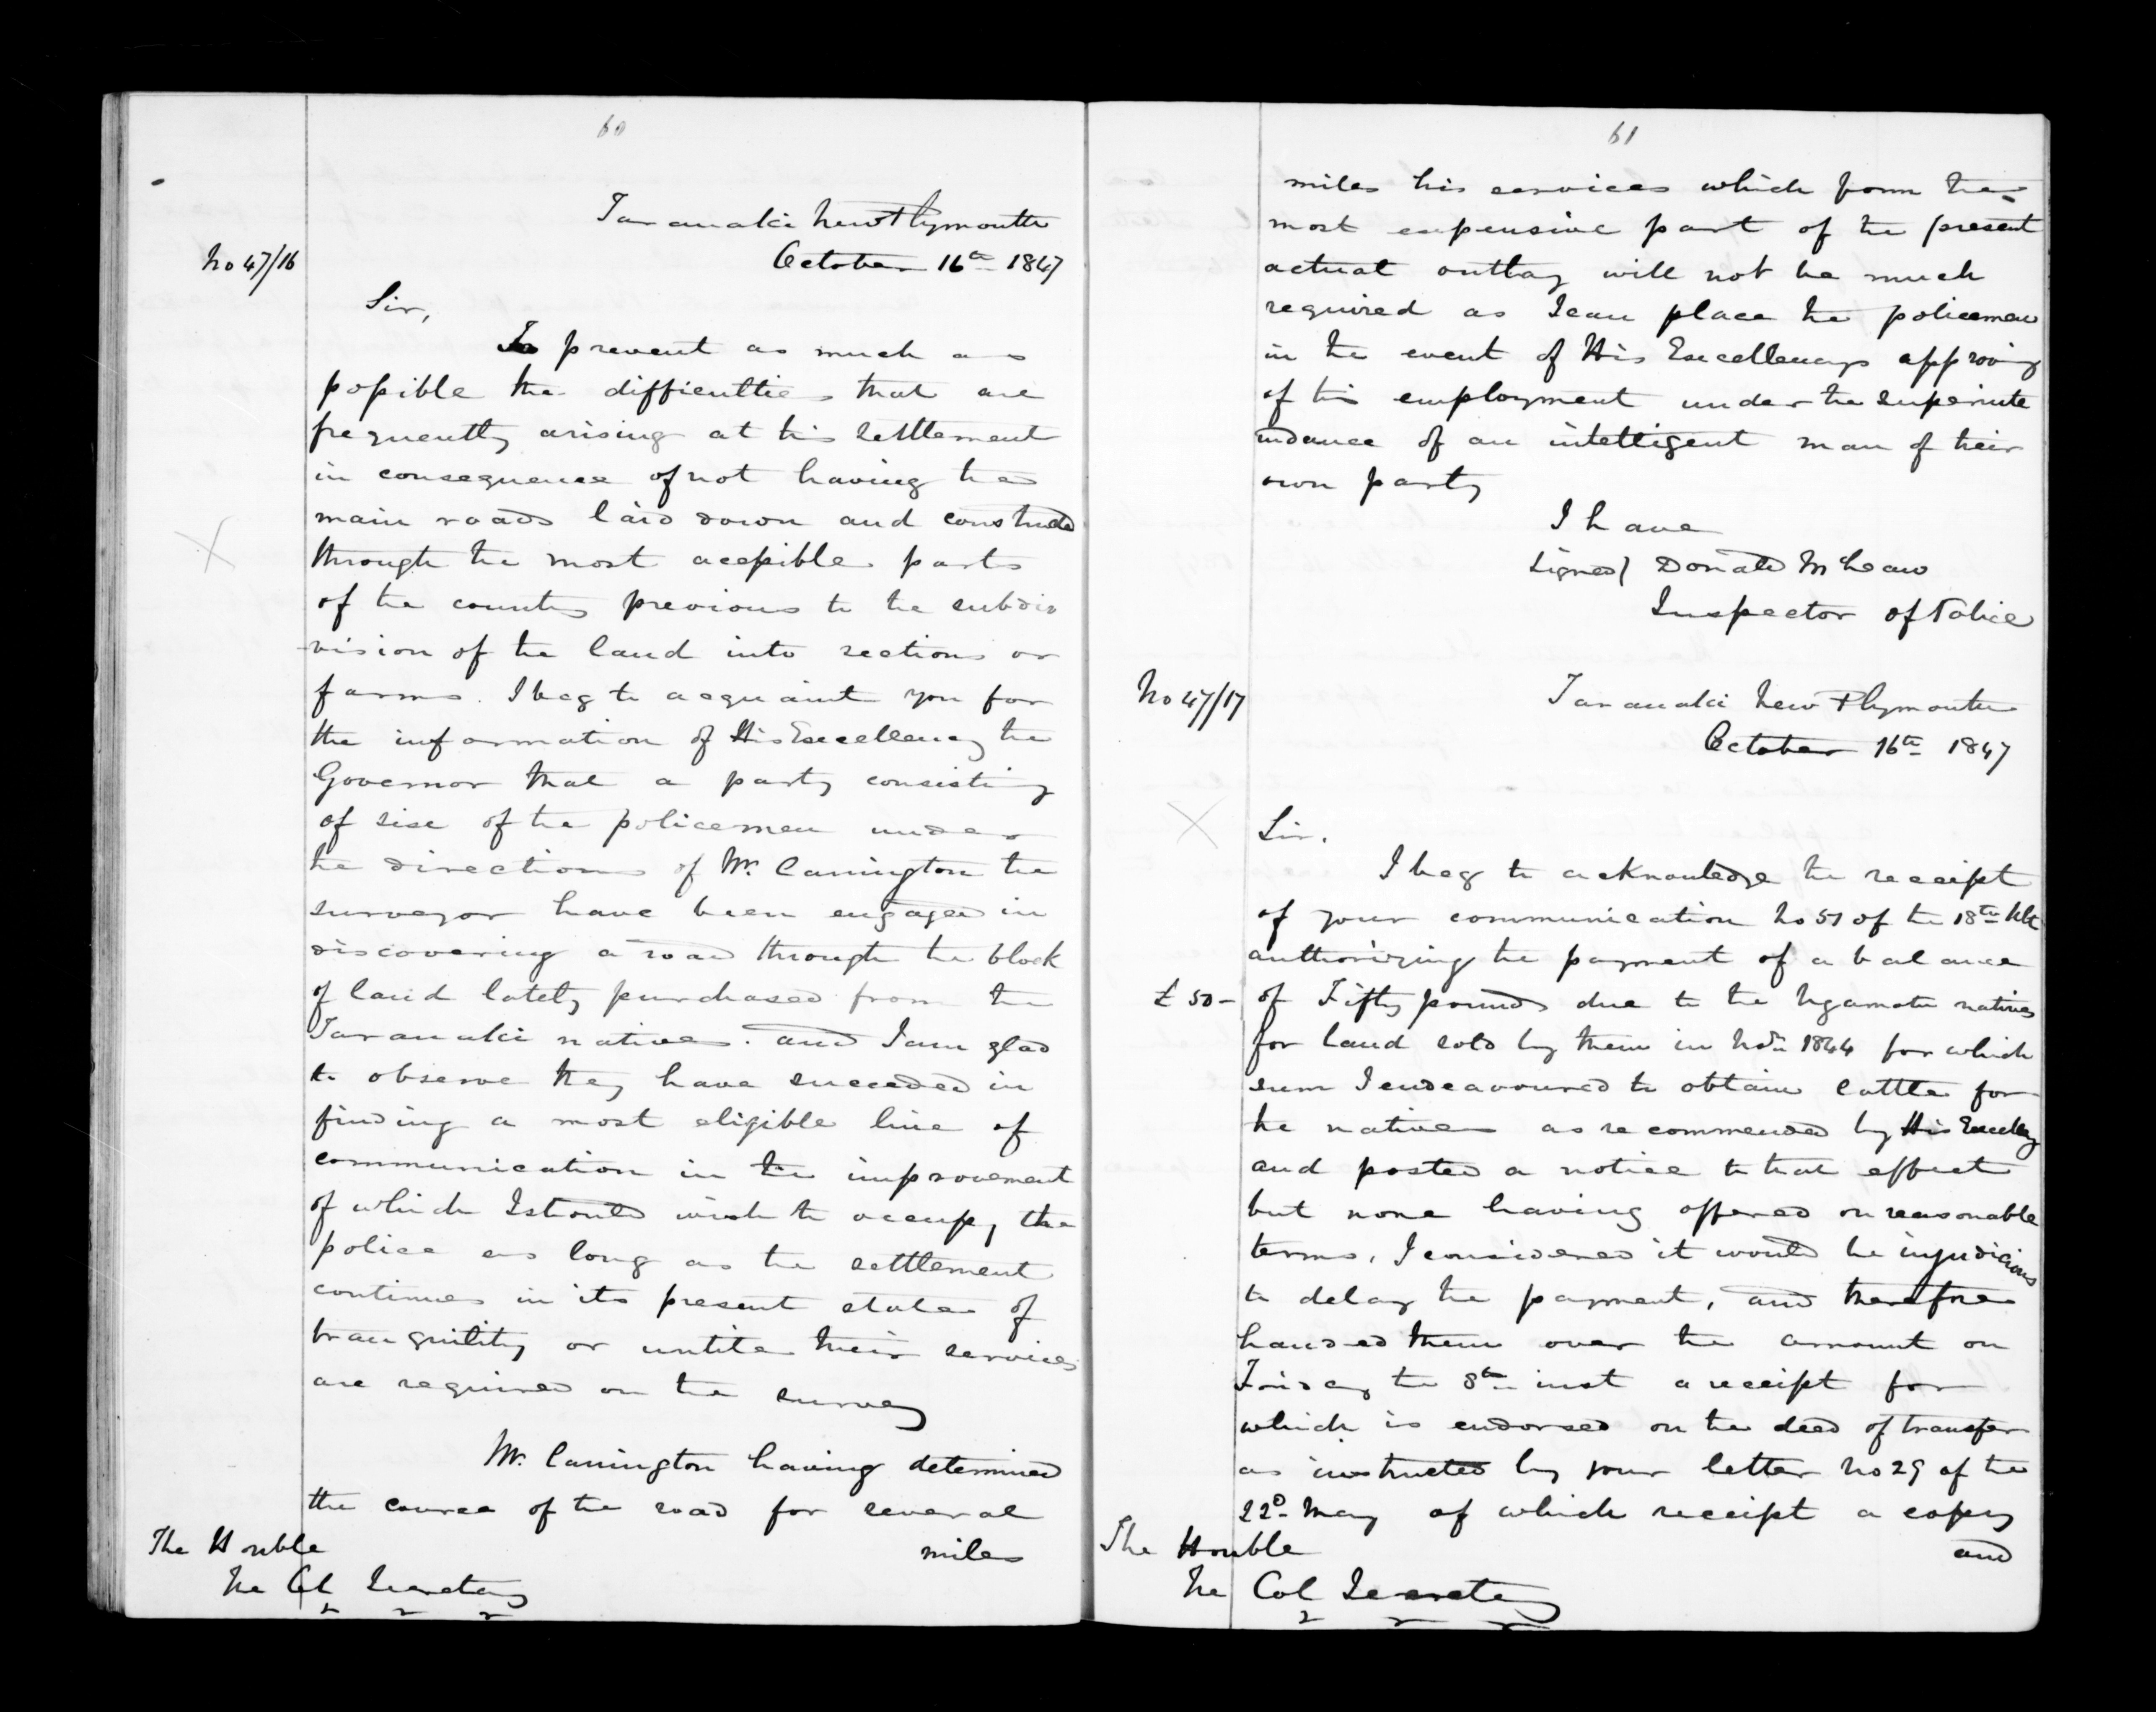 60
Taranaki New Plymouth
No 47/16
October 16th 1847
Sir,
To prevent as much as
possible the difficulties that are
frequently arising at this settlement
in consequence of not having the
main roads laid down and constructed
through the most acessible parts
of the country previous to the subdi
-vision of the land into sections or
farms. I beg to acquaint you for
the information of His Excellency the
Governor that a party consisting
of six of the policemen under
the directions of Mr. Carrington the
surveyor have been engaged in
discovering a road through the block
of land lately purchased from the
Taranaki natives. and I am glad
to observe they have succeeded in
finding a most eligible line of
communication in the improvement
of which I should wish to occupy the
police as long as the settlement
continues in its present state of
tranquility or until their services
are required on the survey
Mr. Carrington having determined
the course of the road for several
miles
The Honble
The Col Secretary
61
miles his services which form the
most expensive part of the present
actual outlay will not be much
required as I can place the policemen
in the event of His Excellencys approving
of this employment under the superinte
ndance of an intelligent man of their
own party
I have
Signed/ Donald McLean
Inspector of Police
No 47/17
Taranaki New Plymouth
October 16th 1847
Sir.
I beg to acknowledge the receipt
of your communication No 51 of the 18th Ult
authorizing the payment of a balance
£50- of Fifty pounds due to the Ngamotu natives
for land sold by them in Novr 1844 for which
sum I endeavoured to obtain Cattle for
the natives as recommended by His Excellcy
and posted a notice to that effect
but none having offered on reasonable
terms, I considered it would be injudicious
to delay the payment, and therefore
handed them over the amount on
Friday the 8th inst a receipt for
which is endorsed on the deed of transfer
as instructed by your letter No 29 of the
22d May of which receipt a copy
and
The Honble
The Col Secretary